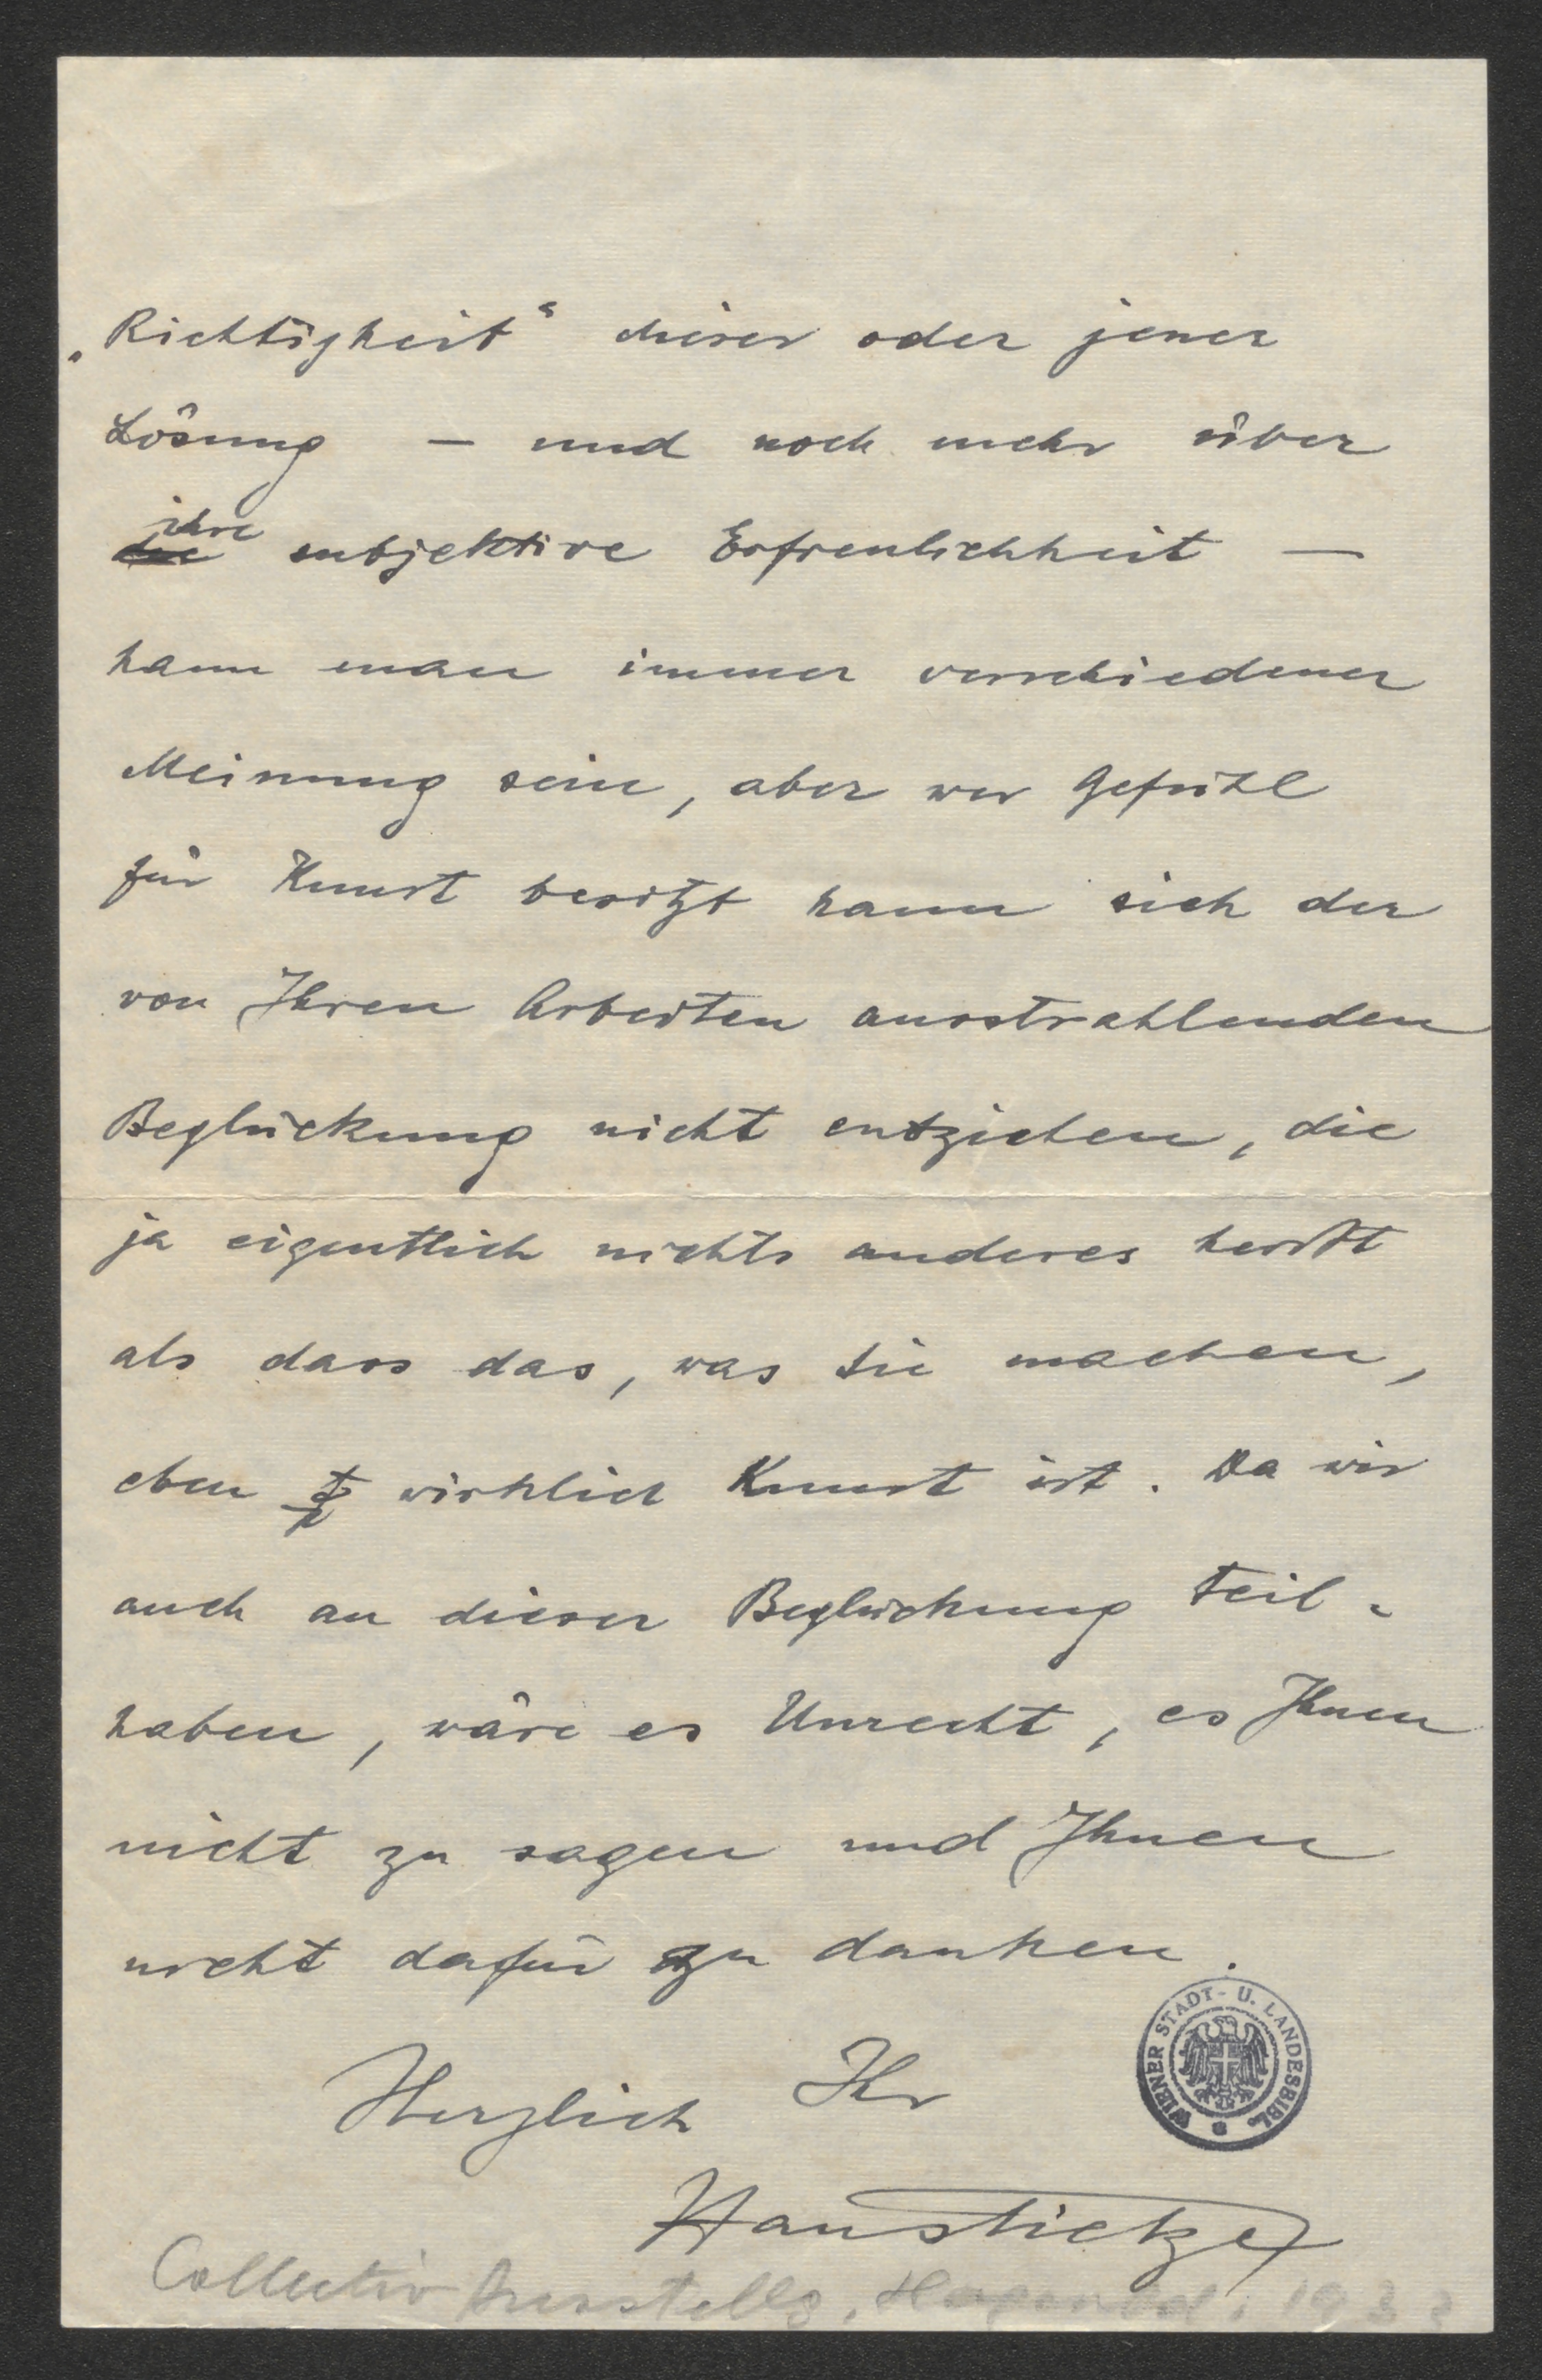 „Richtigkeit“ dieser oder jener
Lösung – und noch mehr über
ihre
die subjektive Erfreulichkeit –
kann man immer verschiedener
Meinung sein, aber wer Gefühl
für Kunst besitzt kann sich der
von Ihren Arbeiten ausstrahlenden
Beglückung nicht entziehen, die
ja eigentlich nichts anderes heisst
als dass das, was Sie machen,
eben wirklich Kunst ist. Da wir
auch an dieser Beglückung teil-
haben, wäre es Unrecht, es Ihnen
nicht zu sagen und Ihnen
nicht dafür zu danken.
Herzlich Ihr
Hans Tietze
WIENER STADT- U. LANDESBIBL.
Collectiv Ausstellg. Hagenbd. 193